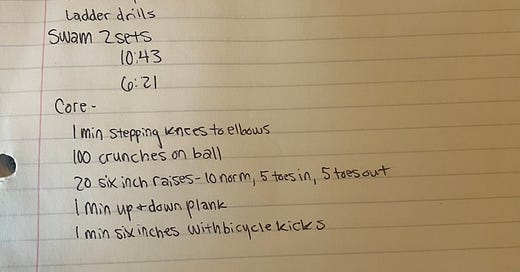 Ladder drills
Swam 2 sets
10:43
6:21
Core -
1 min stepping knees to elbows
100 crunches on ball
20 six inch raises - 10 norm, 5 toes in, 5 toes out
1 Min up + down plank
1 min six inches with bicycle kicks